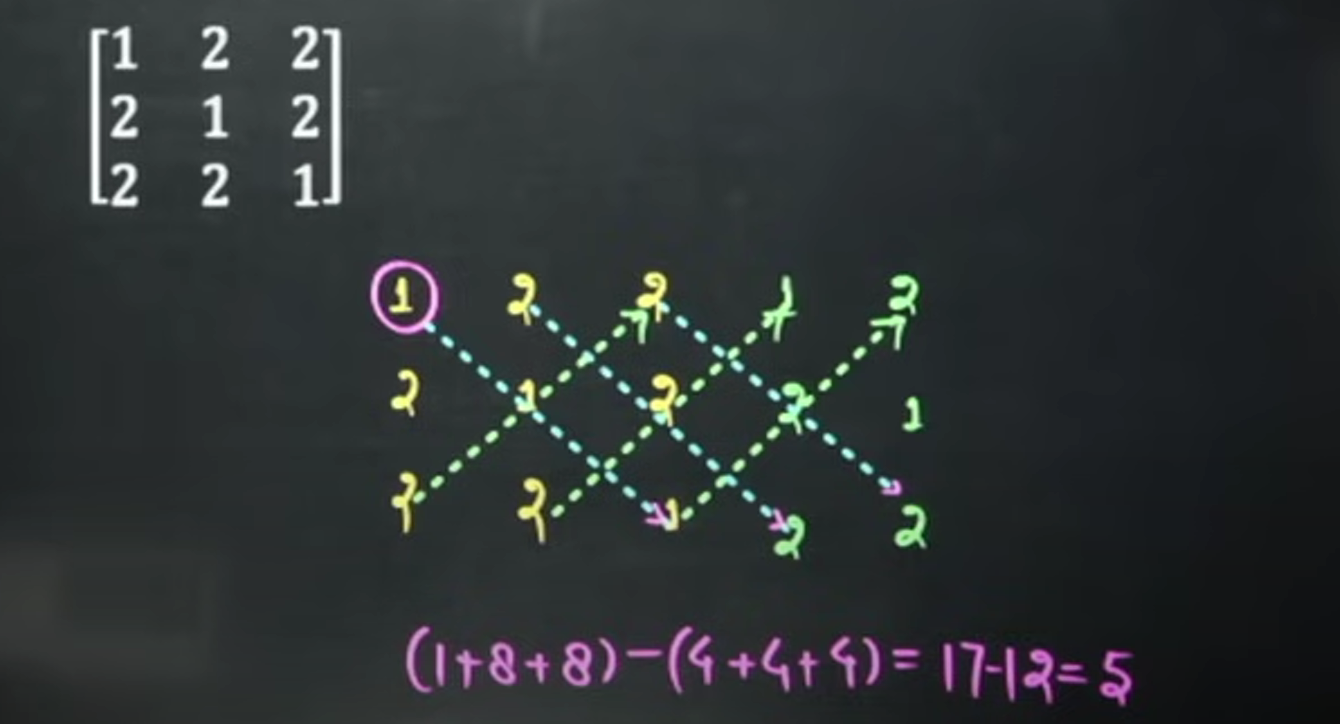 1 2 2
2 1 2
2 2 1
1 2 2 1 2
2 1 2 2 1
2 2 1 2 2
(1+8+8)-(4+4+4)=17-12=5